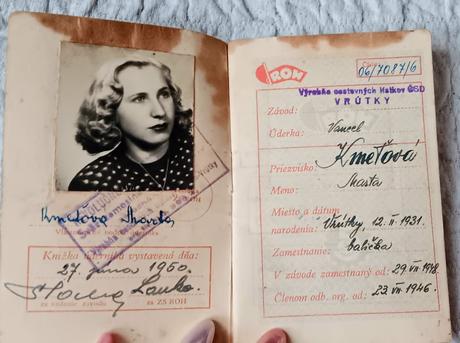 Kmeťova Marta
Knižka úderníka vystavená dňa:
27. júna 1950.
za vedenie závodu
za ZS ROH
ROH
Číslo
06/7087/6
Výrobňa cestovných lístkov ČSD
VRÚTKY
Závod:
Úderka: Vancel
Priezvisko: Kmeťová
Meno: Marta
Miesto a dátum
narodenia: Vrútky, 12. II. 1931.
Zamestnanie: balička
V závode zamestnaný od: 29. VII. 1948.
Členom odb. org. od: 23. VII. 1946.